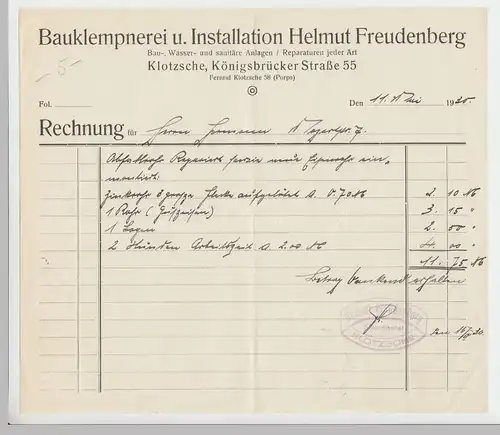 Bauklempnerei u. Installation Helmut Freudenberg
Bau-, Wasser- und sanitäre Anlagen / Reparaturen jeder Art
Klotzsche, Königsbrücker Straße 55
Fernruf Klotzsche 58 (Porps)
- 5 -
Fol.
Den 11. Mai 1920.
Rechnung für Herrn
Abflußrohr Repariert sowie neue ein-
montiert.
Zinkrohr 3 große Flecke aufgelötet a. 0.70 M 2. 10 M
1 Rohr (Gußeisen) 3. 15 "
1 Bogen 2. 50 "
2 Stunden Arbeitszeit a 2.00 M 4. 00 "
11. 75 M
Betrag dankend erhalten
KLOTZSCHE